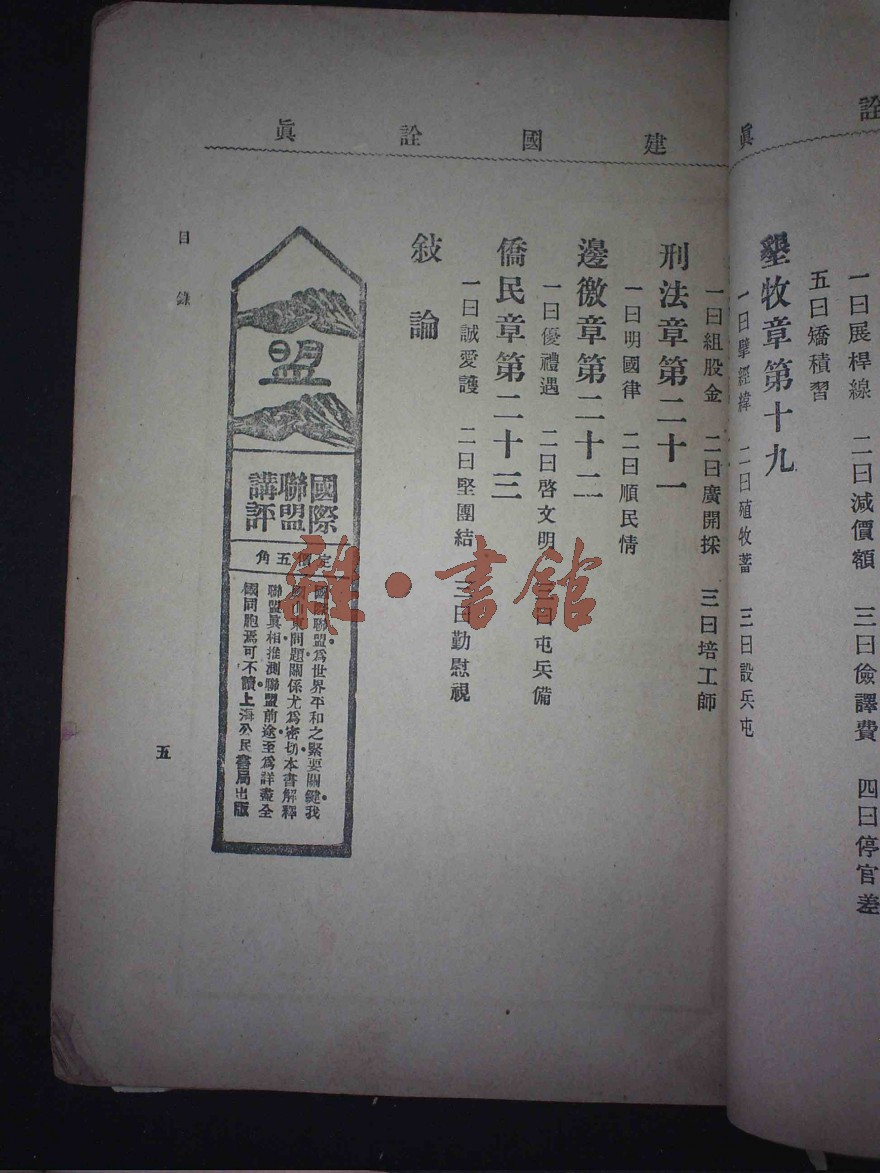 詮
一曰展桿線 二曰減價額 三曰儉譯費 四曰停官差
五曰矯積習
墾牧章第十九
一曰擘經緯 二曰殖牧蓄 三曰設兵屯
眞
建國詮眞
一曰組股金 二曰廣開採 三曰培工師
刑法章第二十一
一曰明國律 二曰順民情
邊徼章第二十二
一曰優禮遇 二曰啓文明 曰屯兵備
僑民章第二十三
一曰誠愛護 二曰堅團結 三曰勤慰視
敍論
盟
國際
聯盟
講評
定價五角
聯盟爲世界平和之緊要關鍵我
東問題關係尤爲密切本書解釋
聯盟眞相推測聯盟前途至爲詳盡全
國同胞焉可不讀上海公民書局出版
目錄
五
雜·書館